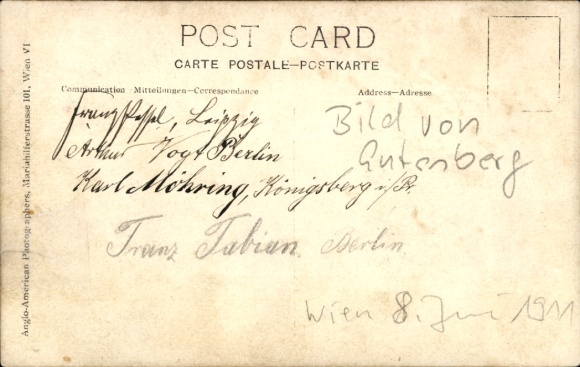 POST CARD
CARTE POSTALE—POSTKARTE
Communication Mitteilungen—Correspondence
Address—Adresse
Franz Possel, Leipzig
Arthur Vogt Berlin
Karl Möhring, Königsberg i/Pr.
Franz Fabian. Berlin
Bild von
Gutenberg
Wien 8. Juni 1911
Anglo-American Photographers, Mariahilferstrasse 101, Wien VI